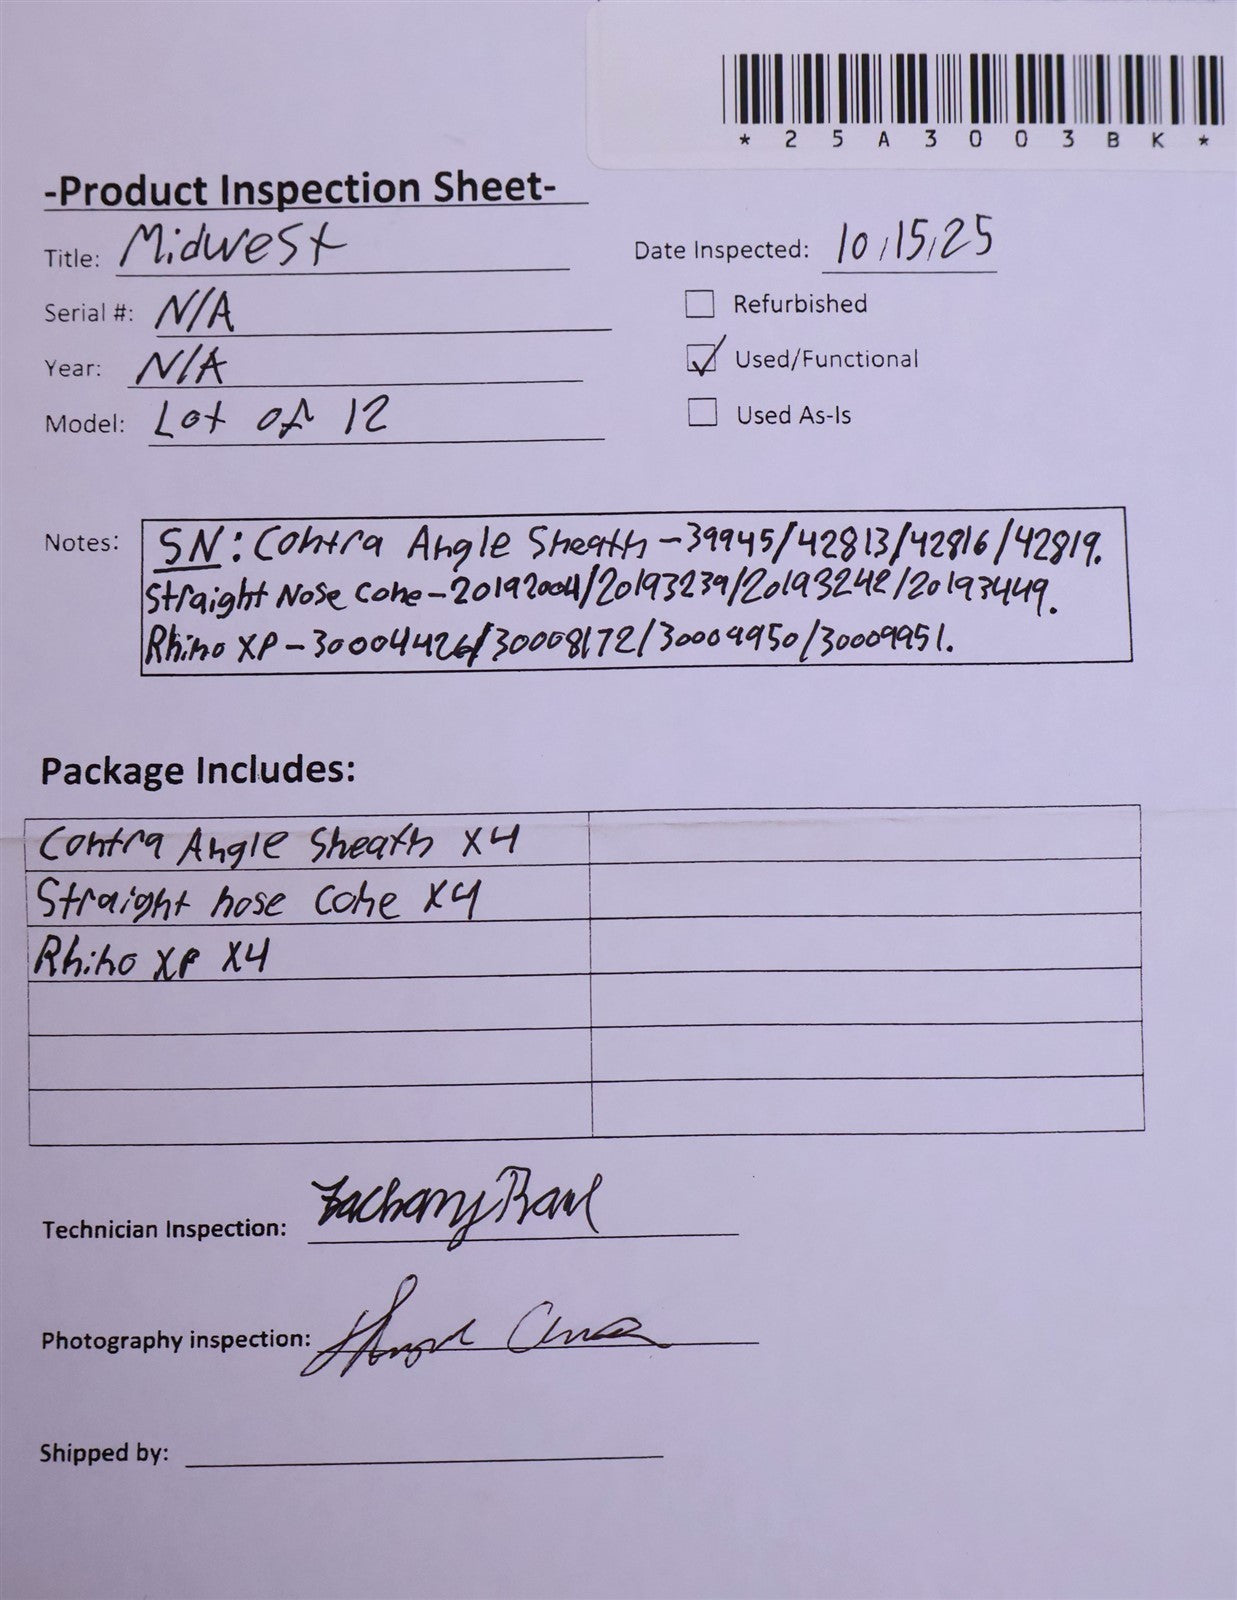 * 2 5 A 3 0 0 3 B K *
-Product Inspection Sheet-
Title: Midwest
Date Inspected: 10/15/25
Serial #: N/A
Refurbished
Year: N/A
Used/Functional
Model: Lot of 12
Used As-Is
Notes: SN: Contra Angle Sheath - 39945/42813/42816/42819.
Straight Nose Cone - 20192004/20193239/20193242/20193449.
Rhino XP - 30004426/30008172/30009950/30009951.
Package Includes:
Contra Angle Sheath x4
Straight nose cone x4
Rhino XP x4
Technician Inspection: Zachary
Photography inspection:
Shipped by: